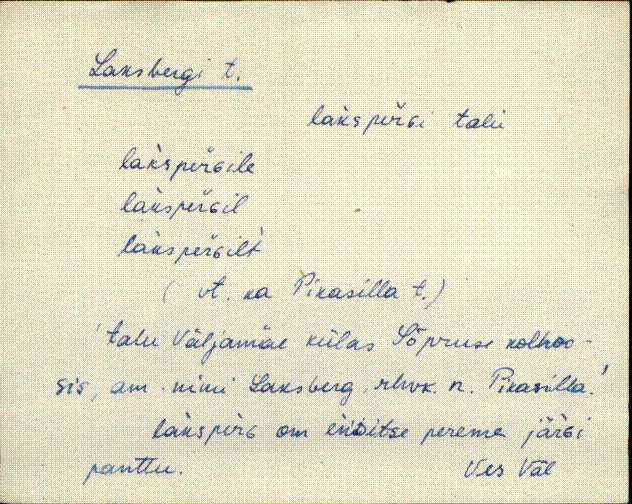 Laksbergi t.
lak̀spèrɢi talu
lak̀spèrɢile
lak̀spèrɢil
lak̀spèrɢilt
(vt. ka Pikasilla t.)
'talu Väljamäe külas Sõpruse kolhoo-
sis, am. nimi Laksberg, rhvk. n. Pikasilla.'
lak̀spèrɢ om enditse pereme järɢi
panttu. Ves Väl